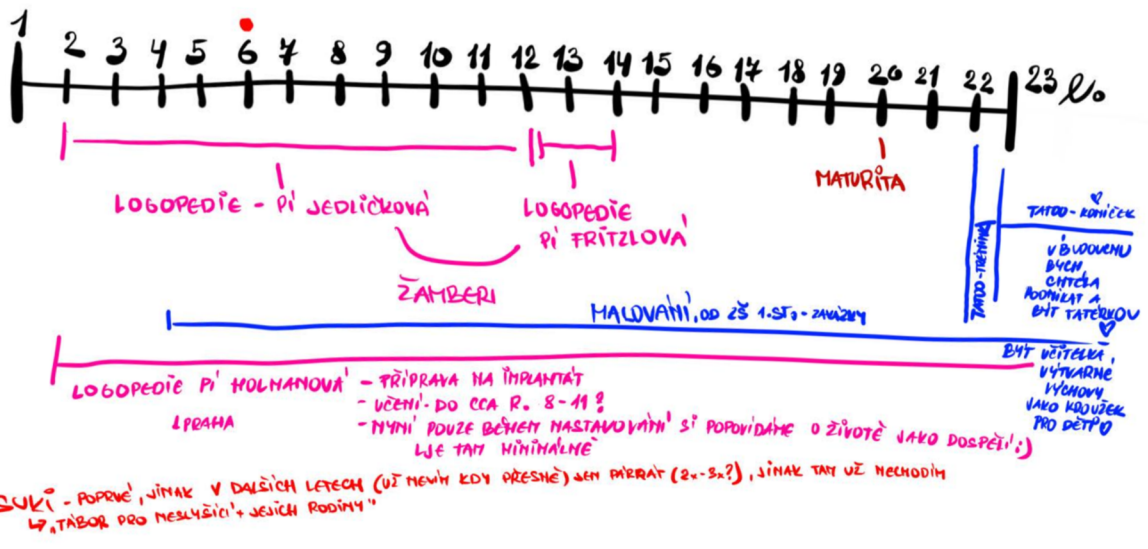 1 2 3 4 5 6 7 8 9 10 11 12 13 14 15 16 17 18 19 20 21 22 23 l.
MATURITA
LOGOPEDIE - PÍ JEDLIČKOVÁ
LOGOPEDIE
PÍ FRITZLOVÁ
ŽAMBERK
TATOO-TRÉNINK
TATOO-KONÍČEK
V BUDOUCNU
BYCH
CHTĚLA
PODNIKAT A
BÝT TATÉRKOU
MALOVÁNÍ, OD ZŠ 1.ST. - ZAKÁZKY
BÝT UČITELKA
VÝTVARNÉ
VÝCHOVY
JAKO KROUŽEK
PRO DĚTI
LOGOPEDIE PÍ HOLMANOVÁ - PŘÍPRAVA NA IMPLANTÁT
PRAHA
- UČENÍ - DO CCA R. 8-11?
- NYNÍ POUZE BĚHEM NASTAVOVÁNÍ SI POPOVÍDÁME O ŽIVOTĚ JAKO DOSPĚLÍ :)
JE TAM MINIMÁLNĚ
SUKI - POPRVÉ, JINAK V DALŠÍCH LETECH (UŽ NEVÍM KDY PŘESNĚ) JEN PÁRKRÁT (2x-3x?), JINAK TAM UŽ NECHODÍM
↳ „TÁBOR PRO NESLYŠÍCÍ + JEJICH RODINY"